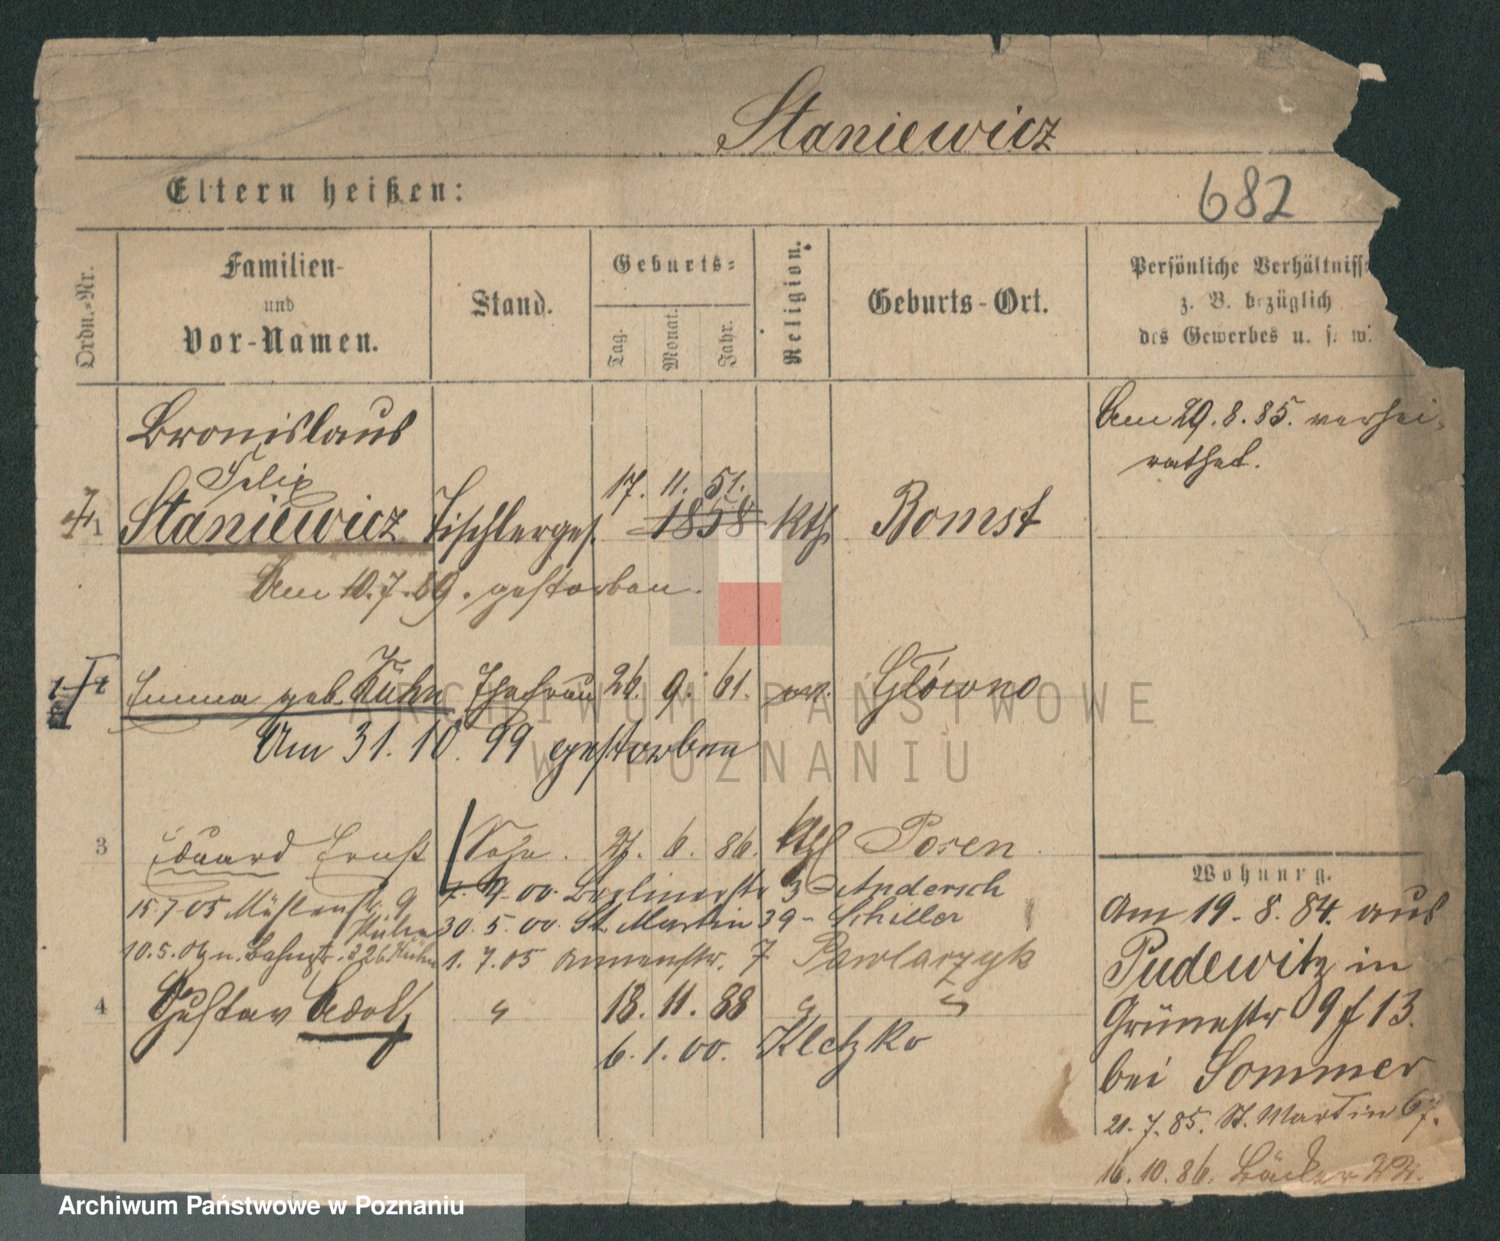 Staniewicz
Eltern heißen:
682
Ordn.-Nr.
Familien-
und
Vor-Namen.
Stand.
Geburts-
Tag.
Monat.
Jahr.
Religion.
Geburts-Ort.
Persönliche Verhältniss
z. B. bezüglich
des Gewerbes u. s. w.
Bronislaus
Felix
1 Staniewicz Tischlerges. 17. 11. 51. 1858 kth Bomst
Am 29.8.85. verhei-
rathet.
Am 10.7.89. gestorben.
Emma geb. Kühn Ehefrau 26. 9. 61. ev. Główno
Am 31. 10. 99 gestorben
3 Eduard Ernst Sohn. 27. 6. 86. kth Posen
7. 00. Berlinerstr 3 - Andersch
15 7 05 Mühlenstr. 9
30. 5. 00. St. Martin 39 - Schiller
1. 7. 05 Annenstr. 7 Pawlarzyk
4 Gustav Adolf " 18. 11. 88 " "
6. 1. 00. Kletzko
Wohnung.
Am 19. 8. 84. aus
Pudewitz in
Grünestr 9 f 13.
bei Sommer
21. 7. 85. St. Martin 67.
16. 10. 86. Bäcker
ARCHIWUM PAŃSTWOWE
W POZNANIU
Archiwum Państwowe w Poznaniu